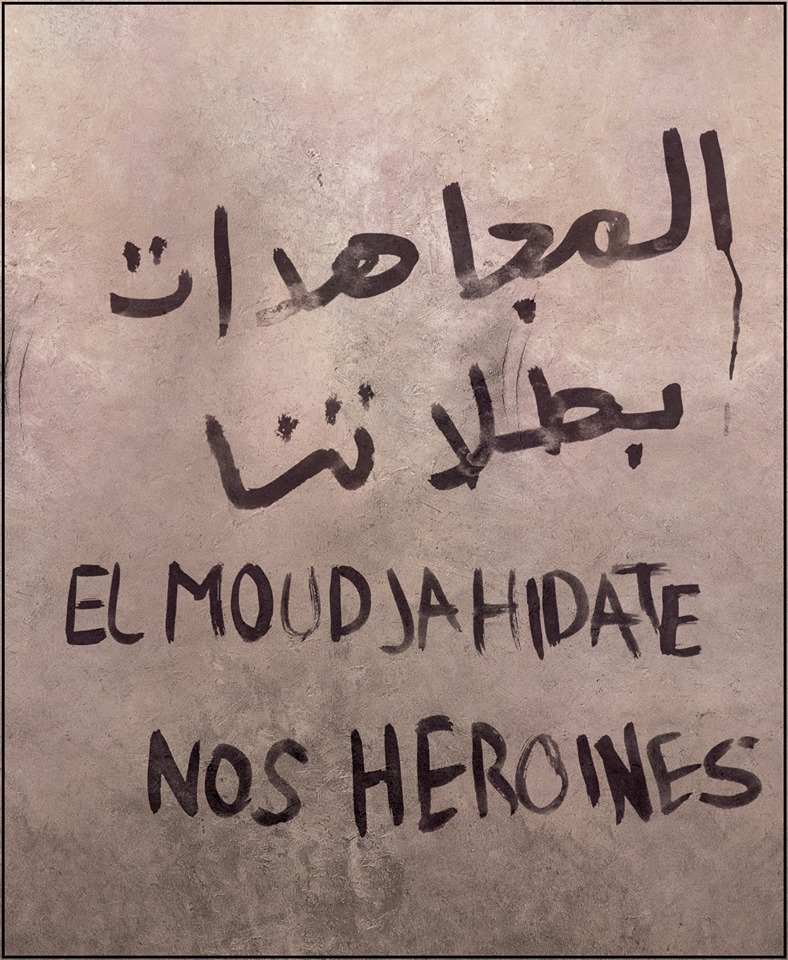 المجاهدات
بطلاتنا
EL MOUDJAHIDATE
NOS HEROINES